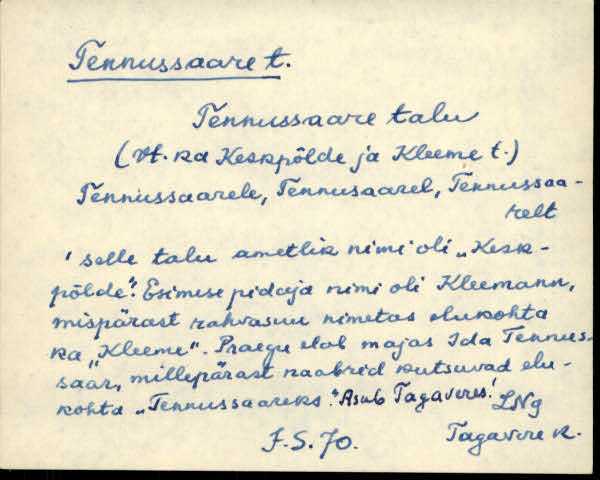 Tennussaare t.
Tennussaare talu
(vt. ka Keskpõlde ja Kleeme t.)
Tennussaarele, Tennusaarel, Tennussaa-
relt
' Selle talu ametlik nimi oli „Kesk-
põlde". Esimese pidaja nimi oli Kleemann,
mispärast rahvasuu nimetas elukohta
ka „Kleeme". Praegu elab majas Ida Tennus-
saar, millepärast naabrid kutsuvad elu-
kohta „Tennussaareks." Asub Tagaveres!
LNg
J.S. 70.
Tagavere k.